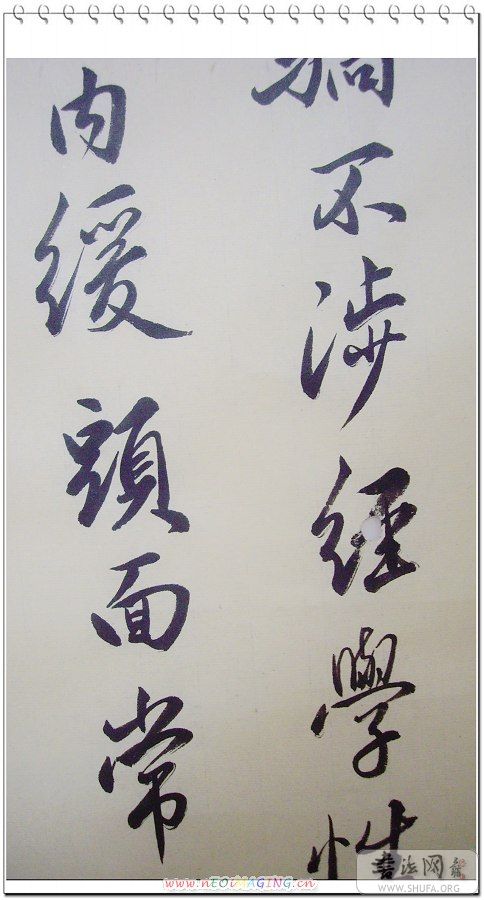 不涉經學性
肉緩頭面常
书法网
WWW.SHUFA.ORG
www.nEOiMAGING.cn